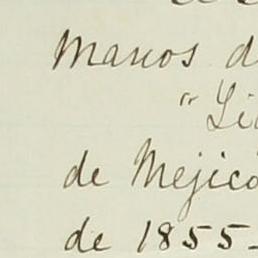 Marcos d
"Li
de Mejico
de 1855-